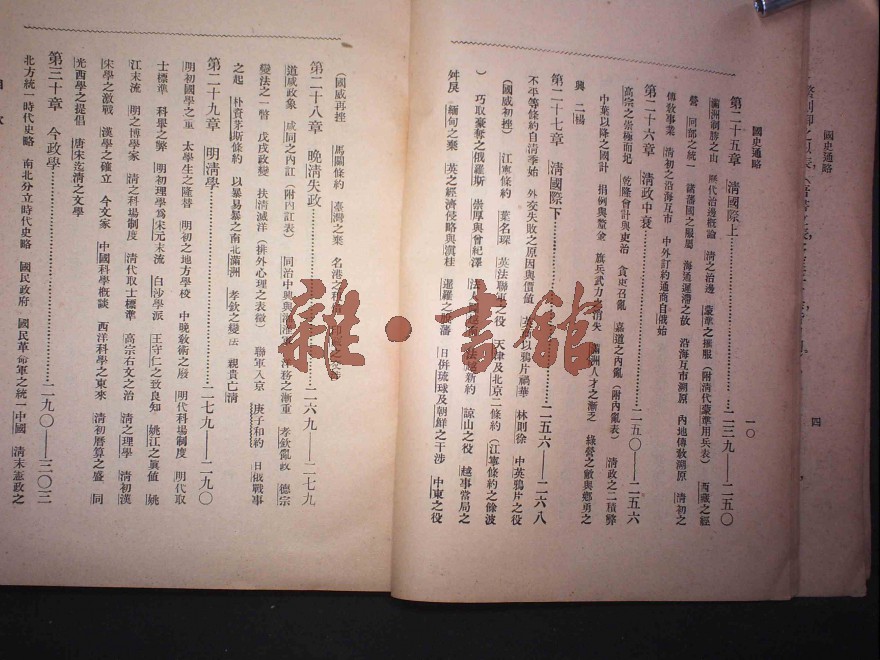 國史通略
一〇
第二十五章　清國際上……二三九——二五〇
滿洲制勝之由　歷代治邊概論　清之治邊　蒙準之摧服（附清代蒙準用兵表）　西藏之經
營　回部之統一　諸藩國之服屬　海通遲滯之故　沿海互市溯原　內地傳教溯原　清初之
傳教事業　清初之沿海互市　中外訂約通商自俄始
第二十六章　清政中衰……二五〇——二五六
高宗之崇極而圮　乾隆會計與吏治　貪吏召亂　嘉道之內亂（附內亂表）　清政之二積弊
中葉以降之國計　捐例與釐金　旗兵武力之消失　滿洲人才之漸乏　綠營之敝與鄉勇之
興　二楊
第二十七章　清國際下……二五六——二六八
不平等條約自清季始　外交失敗之原因與價值　以鴉片禍華　林則徐　中英鴉片之役
（國威初挫）　江寧條約　葉名琛　英法聯軍之役　天津及北京二條約（江寧條約之餘波
）　巧取豪奪之俄羅斯　崇厚與曾紀澤　新約　諒山之役　越事當局之
舛戾　緬甸之棄　英之經濟侵略與滇桂　暹羅之　藩　日併琉球及朝鮮之干涉　中東之役
（國威再挫）　馬關條約　臺灣之棄　名港之租
第二十八章　晚清失政……二六九——二七九
道咸政象　咸同之內訌（附內訌表）　同治中興與　洋務之漸重　孝欽亂政　德宗
變法之一瞥　戊戌政變　扶清滅洋（排外心理之表徵）　聯軍入京　庚子和約　日俄戰事
之起　朴資茅斯條約　以暴易暴之南北滿洲　孝欽之變法　親貴亡清
第二十九章　明清學……二七九——二九〇
明初國學之重　太學生之隆替　明初之地方學校　中晚教術之廢　明代科場制度　明代取
士標準　科舉之弊　明初理學爲宋元末流　白沙學派　王守仁之致良知　姚江之真値　姚
江末流　明之博學家　清之科場制度　清代取士標準　高宗右文之治　清之理學　清初漢
宋學之激戰　漢學之確立　今文家　中國科學概談　西洋科學之東來　清初曆算之盛　同
光西學之提倡　唐宋迄清之文學
第三十章　今政學……二九〇——三〇三
北方統一時代史略　南北分立時代史略　國民政府　國民革命軍之統一中國　清末憲政之
國史通略
四
雜·書館